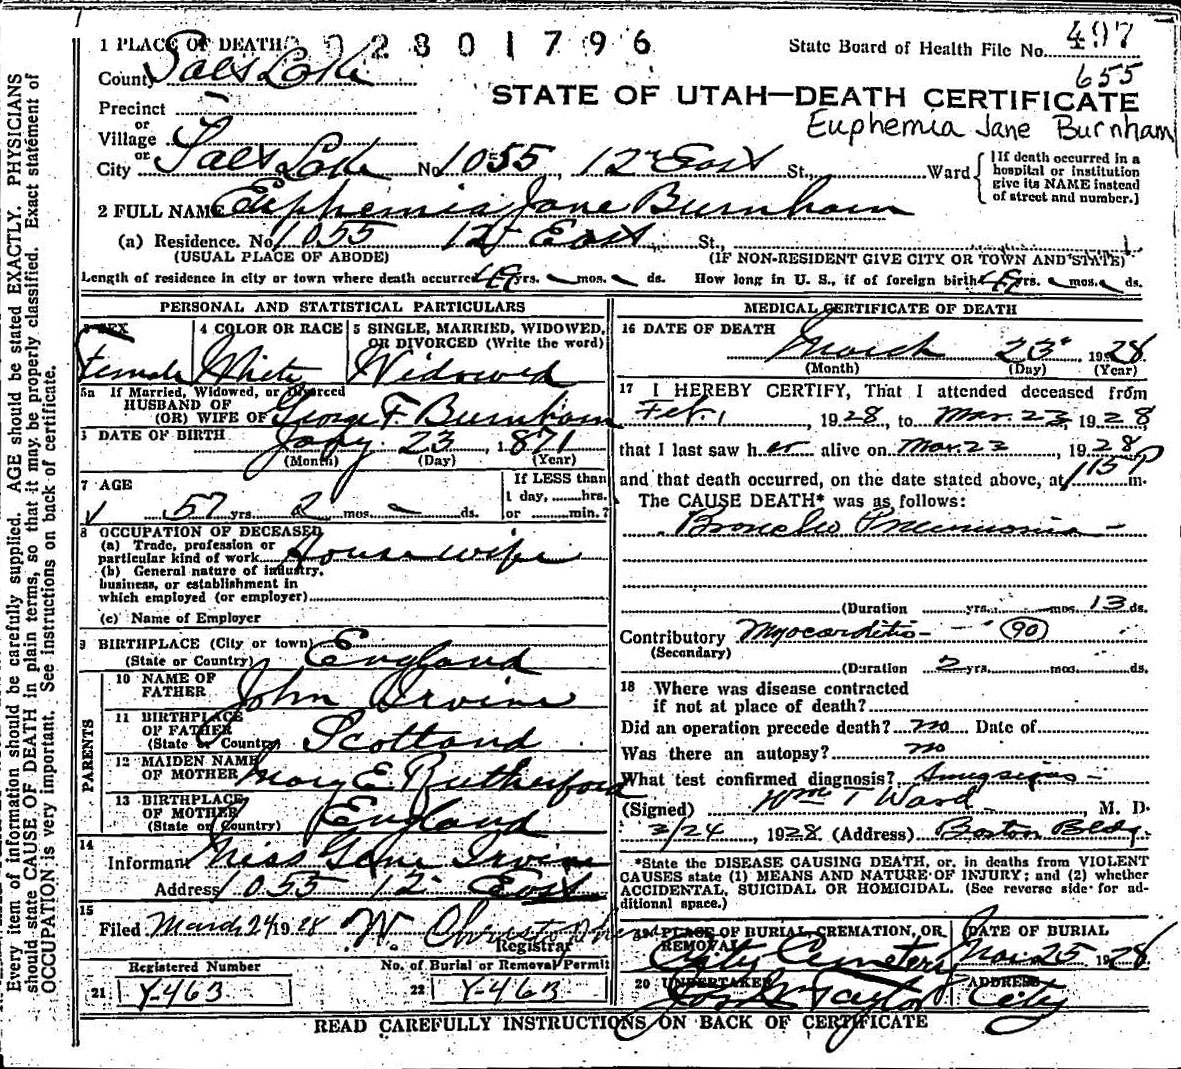 1 PLACE OF DEATH 2801796
State Board of Health File No. 497
County Salt Lake
655
STATE OF UTAH—DEATH CERTIFICATE
Precinct
or
Village
Euphemia Jane Burnham
or
City Salt Lake No. 1055, 12th East St., Ward
{If death occurred in a hospital or institution give its NAME instead of street and number.}
2 FULL NAME Euphemia Jane Burnham
(a) Residence. No. 1055 12th East St.,
(USUAL PLACE OF ABODE) (IF NON-RESIDENT GIVE CITY OR TOWN AND STATE)
Length of residence in city or town where death occurred 49 yrs. – mos. – ds. How long in U. S., if of foreign birth? 49 yrs. – mos. – ds.
PERSONAL AND STATISTICAL PARTICULARS
3 SEX
Female
4 COLOR OR RACE
White
5 SINGLE, MARRIED, WIDOWED, OR DIVORCED (Write the word)
Widowed
5a If Married, Widowed, or Divorced
HUSBAND OF
(OR) WIFE OF George F. Burnham
DATE OF BIRTH Jany. 23, 1871
(Month) (Day) (Year)
7 AGE
57 yrs. 2 mos. – ds.
If LESS than
1 day, hrs.
or min.?
8 OCCUPATION OF DECEASED
(a) Trade, profession or
particular kind of work Housewife
(b) General nature of industry,
business, or establishment in
which employed (or employer)
(c) Name of Employer
9 BIRTHPLACE (City or town)
(State or Country) England
PARENTS
10 NAME OF
FATHER John Irvine
11 BIRTHPLACE
OF FATHER
(State or Country) Scotland
12 MAIDEN NAME
OF MOTHER Mary E. Rutherford
13 BIRTHPLACE
OF MOTHER
(State or Country) England
14
Informant Miss Gene Irvine
Address 1055 12 East
15
Filed March 24 1928 W. Christopherson
Registrar
Registered Number
21 Y-463
No. of Burial or Removal Permit
22 Y-463
MEDICAL CERTIFICATE OF DEATH
16 DATE OF DEATH
March 23, 1928
(Month) (Day) (Year)
17 I HEREBY CERTIFY, That I attended deceased from
Feb. 1, 1928, to Mar. 23 1928
that I last saw her alive on Mar. 23, 1928
and that death occurred, on the date stated above, at 115 P m.
The CAUSE DEATH* was as follows:
Broncho Pneumonia –
(Duration yrs. mos. 13 ds.
Contributory Myocarditis – (90)
(Secondary)
(Duration 2 yrs. mos. ds.
18 Where was disease contracted
if not at place of death?
Did an operation precede death? no Date of
Was there an autopsy? no
What test confirmed diagnosis?
(Signed) Wm T Ward M. D.
3/24, 1928 (Address) Boston Bldg.
*State the DISEASE CAUSING DEATH, or, in deaths from VIOLENT
CAUSES state (1) MEANS AND NATURE OF INJURY; and (2) whether
ACCIDENTAL, SUICIDAL OR HOMICIDAL. (See reverse side for ad-
ditional space.)
19 PLACE OF BURIAL, CREMATION, OR
REMOVAL
City Cemetery
DATE OF BURIAL
Mar. 25 1928
20 UNDERTAKER
Taylor
ADDRESS
City
READ CAREFULLY INSTRUCTIONS ON BACK OF CERTIFICATE
Every item of information should be carefully supplied. AGE should be stated EXACTLY. PHYSICIANS
should state CAUSE OF DEATH in plain terms, so that it may be properly classified. Exact statement of
OCCUPATION is very important. See instructions on back of certificate.